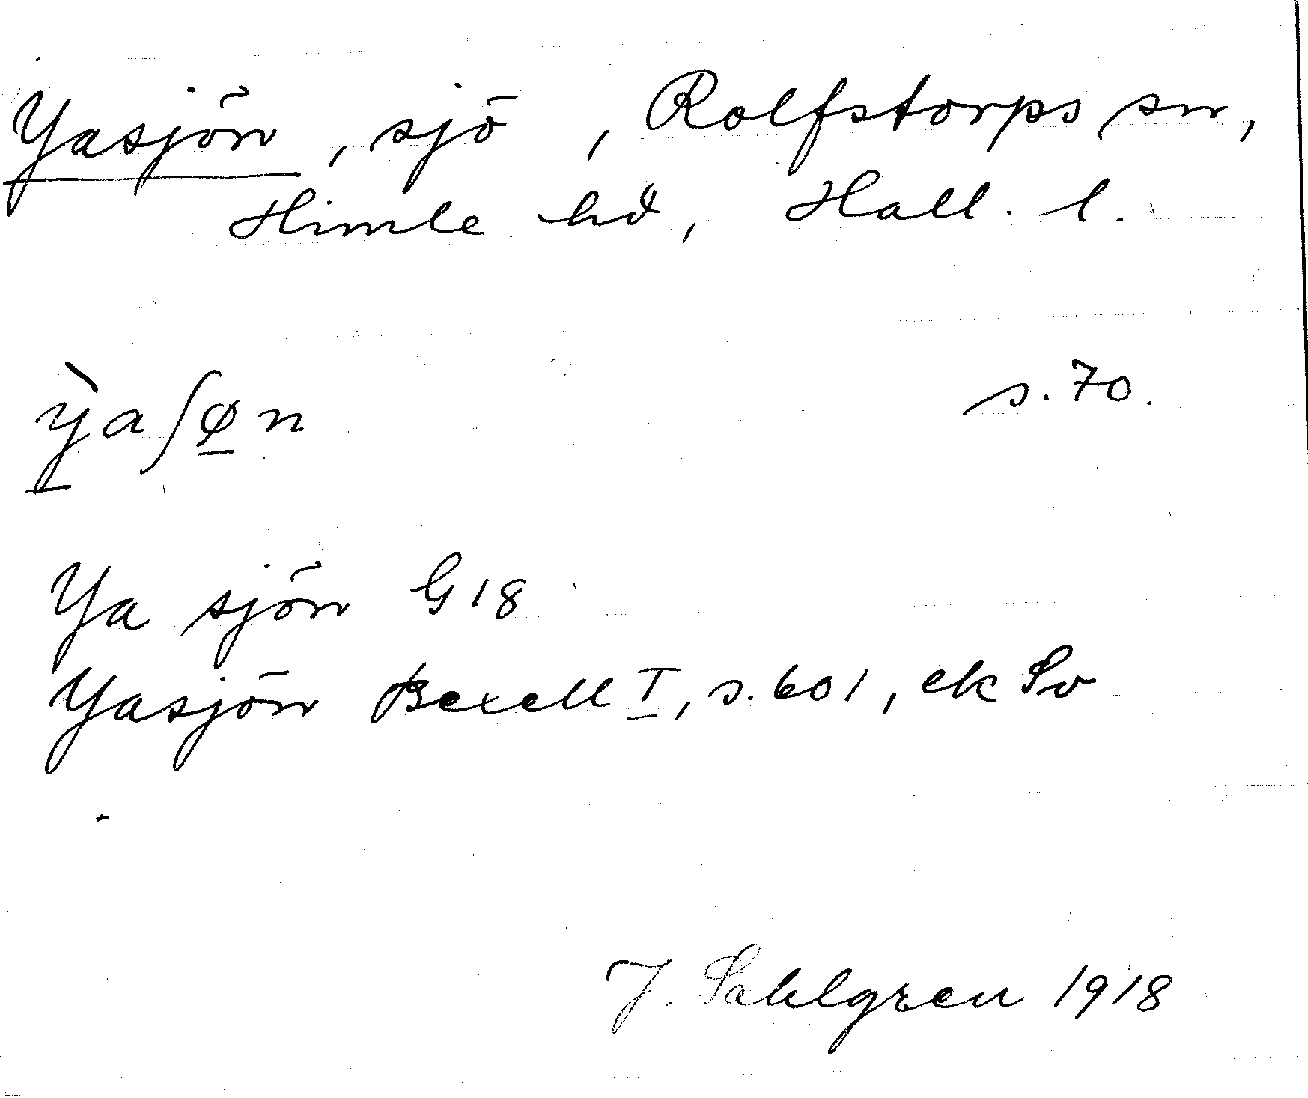 Yasjön, sjö, Rolfstorps sn,
Himle hd, Hall. l.
ỳaʃøn s. 70.
Ya sjön G 18
Yasjön Bexell I, s. 601, ek Sv
J. Sahlgren 1918